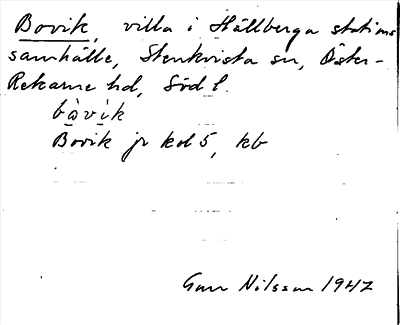 Bovik, villa i Hällberga stations
samhälle, Stenkvista sn, Öster-
Rekarne hd, Söd l.
bàvìk
Bovik jr kol 5, kb
Gun Nilsson 1947